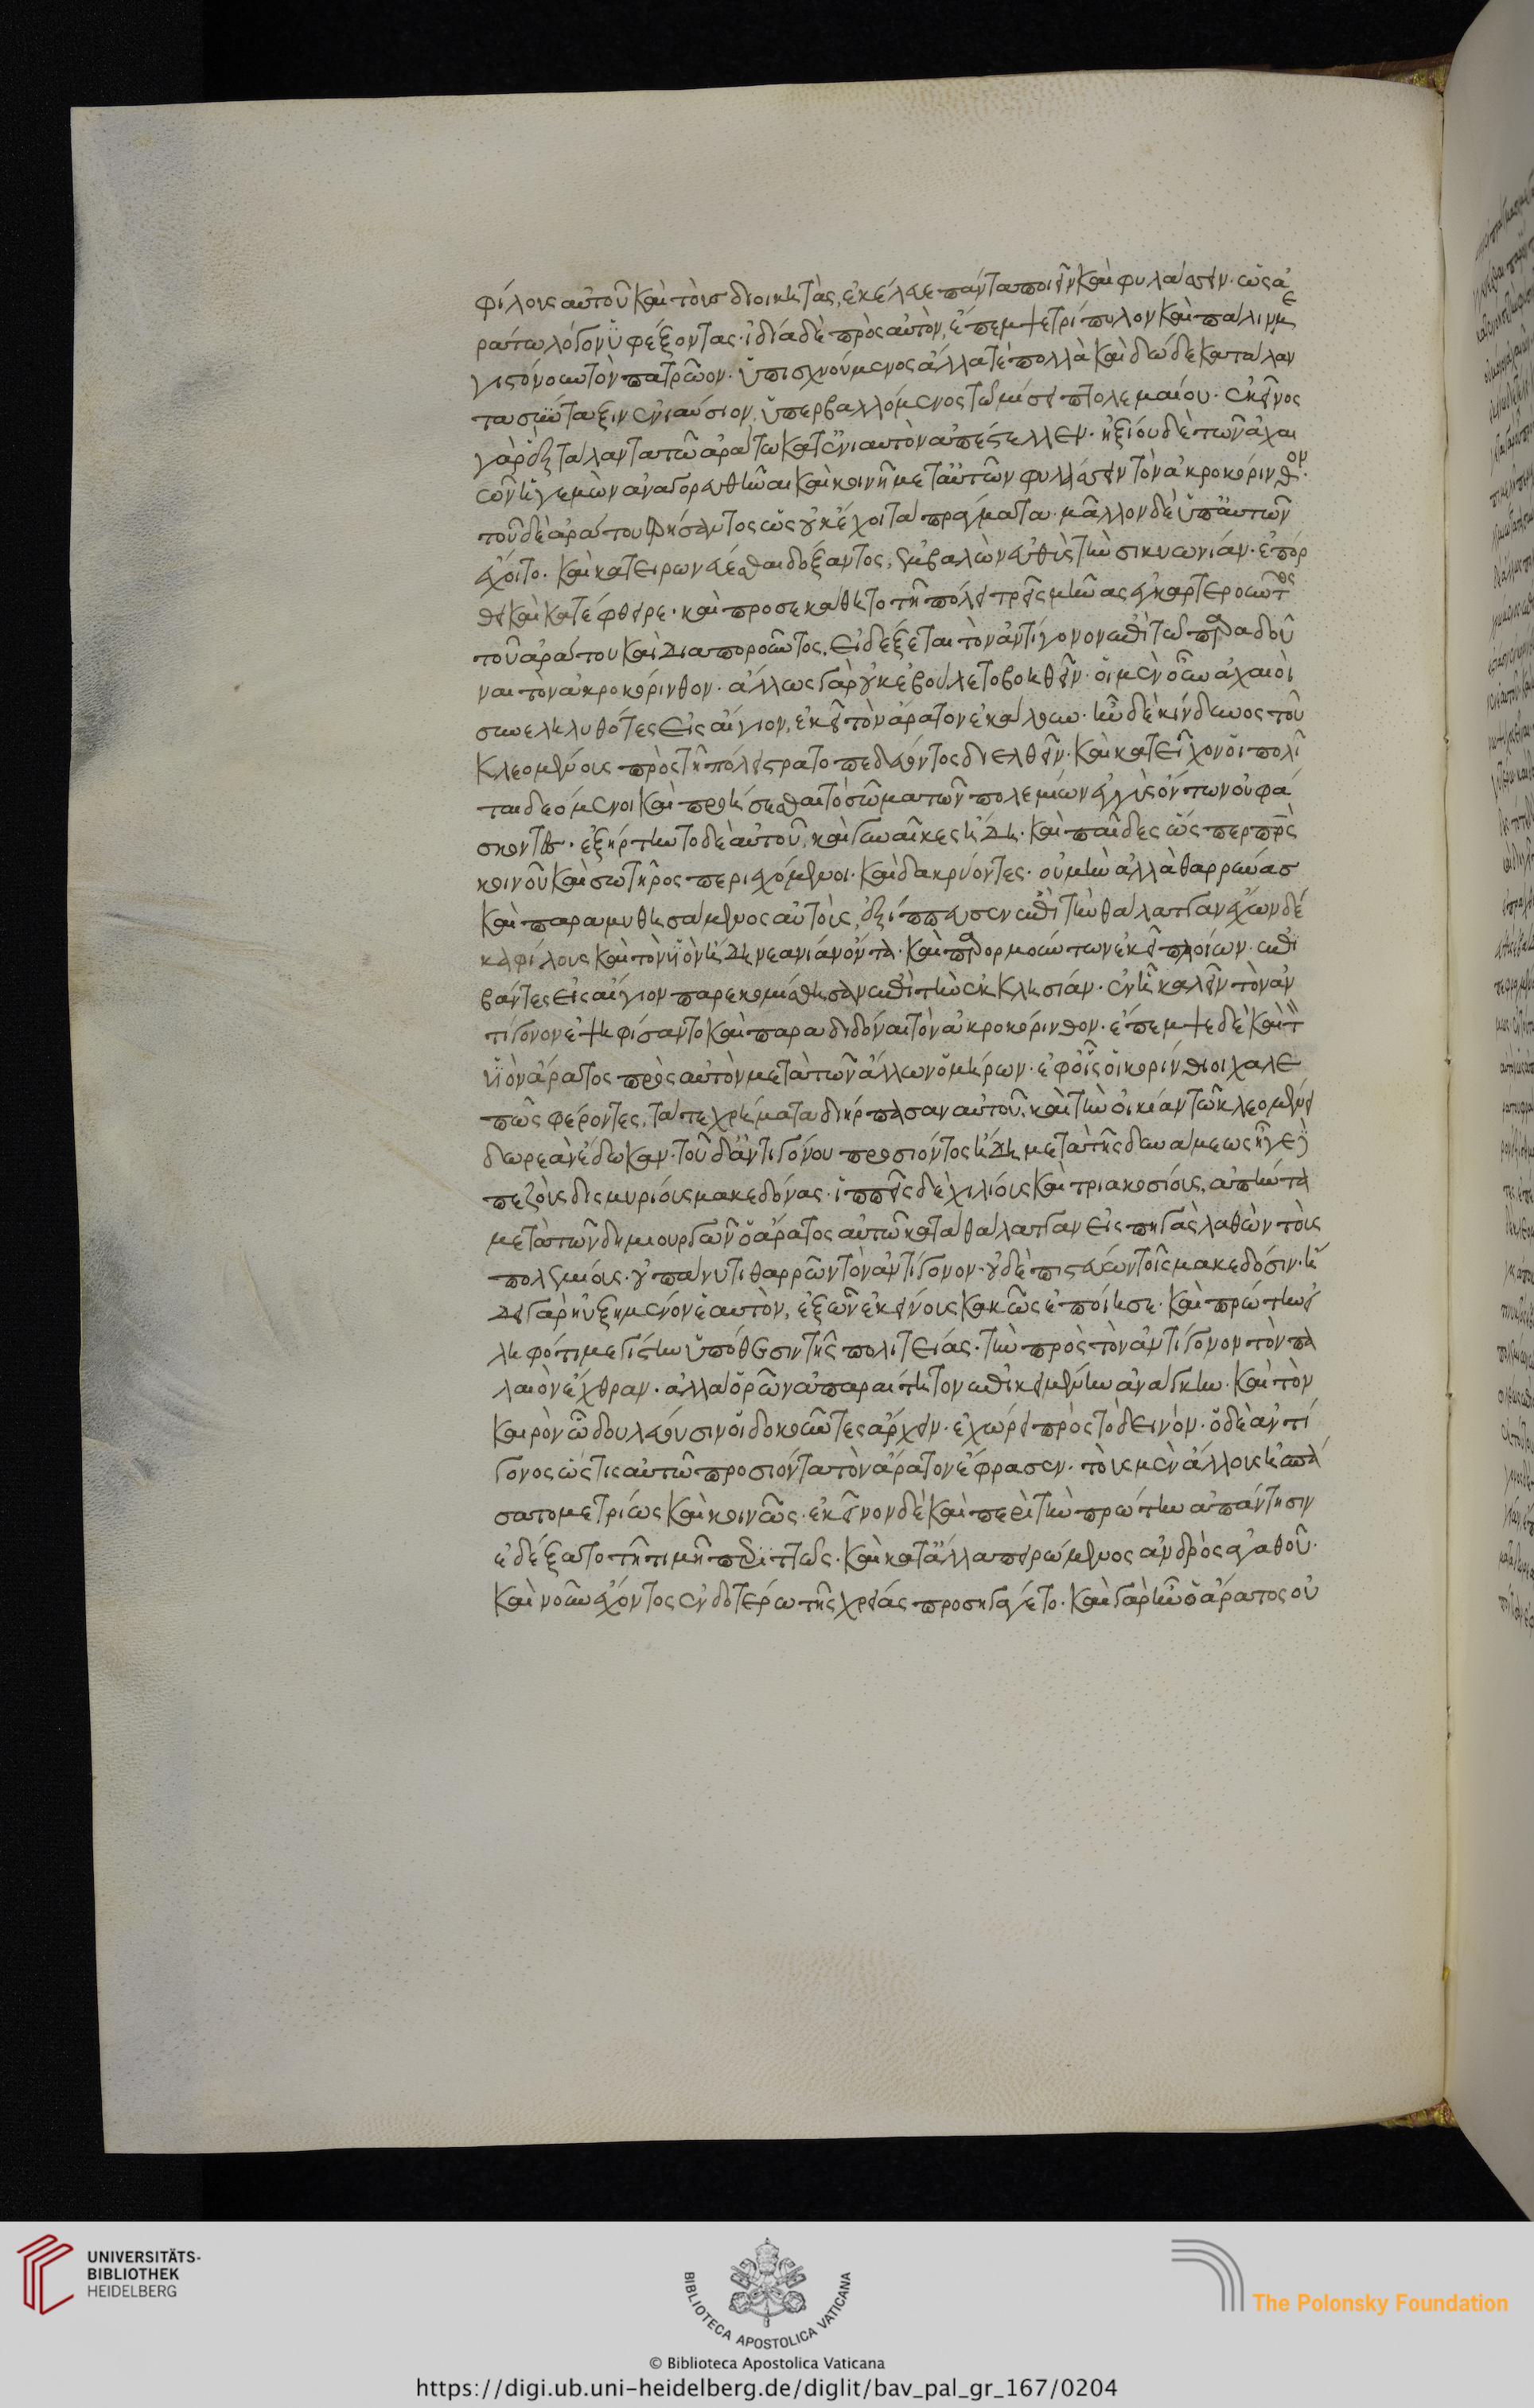 φίλοις αὐτοῦ καὶ τοῖσ διοικητὰς, ἐκέλευε πάντα ποιεῖν καὶ φυλάσσειν· ὡς ἀ
ράτω λόγον ὑφέξοντας· ἰδία δὲ πρὸς αὐτὸν, ἔπεμψε τρίπυλον καὶ πάλιν με
γιστόνουν τὸν πατρῶον· ὑπισχνούμενος ἄλλα τὲ πολλὰ καὶ δώδεκα τάλαν
τα σύνταξιν ἐνιαύσιον, ὑπερβαλλόμενος τῶ μίσει πτολεμαίου· ἐκεῖνος
γὰρ ἓξ τάλαντα τῶ ἀράτω κατ' ἐνιαυτὸν ἀπέστελλεν· ἠξίου δὲ τῶν ἀχαι
ῶν ἡγεμὼν ἀναγορευθῆναι καὶ κοινῆ μετ' αὐτῶν φυλάσσειν τὸν ἀκροκόρινθον·
τοῦ δὲ ἀράτου φήσαντος ὡς οὐκ ἔχοι τὰ πράγματα· μᾶλλον δὲ ὑπ' αὐτῶν
ἔχοιτο· καὶ κατειρωνεύεσθαι δόξαντος, ἐμβαλὼν εὐθὺς τὴν σικυωνίαν· ἐπόρ
θει καὶ κατέφθειρε· καὶ προσεκάθητο τῆ πόλει τρεῖς μῆνας ἐγκαρτεροῦντος
τοῦ ἀράτου καὶ διαποροῦντος, εἰ δέξεται τὸν ἀντίγονον ἐπὶ τῶ παραδοῦ
ναι τὸν ἀκροκόρινθον· ἄλλως γὰρ οὐκ ἐβούλετο βοηθεῖν· οἱ μὲν οὖν ἀχαιοὶ
συνεληλυθότες εἰς αἴγιον, ἐκεῖ τὸν ἄρατον ἐκάλουν· ἦν δὲ κίνδυνος τοῦ
κλεομένους πρὸς τῆ πόλει στρατοπεδεύοντος διελθεῖν· καὶ κατεῖχον οἱ πολῖ
ται δεόμενοι καὶ προήσεσθαι τὸ σῶμα τῶν πολεμίων ἐγγὺς ὄντων οὐ φά
σκοντες· ἐξήρτηντο δὲ αὐτοῦ, καὶ γυναῖκες ἤδη· καὶ παῖδες ὥσπερ πατρὸς
κοινοῦ καὶ σωτῆρος περιεχόμενοι· καὶ δακρύοντες· οὐ μὴν ἀλλὰ θαρρύνασ
καὶ παραμυθησάμενος αὐτοὺς, ἐξίππευσεν ἐπὶ τὴν θάλατταν ἔχων δέ
κα φίλους καὶ τὸν υἱὸν ἤδη νεανίαν ὄντα· καὶ παρορμούντων ἐκεῖ πλοίων· ἐπι
βάντες εἰς αἴγιον παρεκομίσθησαν ἐπὶ τὴν ἐκκλησίαν· ἐν ἧ καλεῖν τὸν ἀν
τίγονον ἐψηφίσαντο καὶ παραδιδόναι τὸν ἀκροκόρινθον· ἔπεμψε δὲ καὶ τὸν
υἱὸν ἄρατος πρὸς αὐτὸν μετὰ τῶν ἄλλων ὁμήρων· ἐφ' οἷς οἱ κορίνθιοι χαλε
πῶς φέροντες, τά τε χρήματα διήρπασαν αὐτοῦ, καὶ τὴν οἰκίαν τῶ κλεομένει
δωρεὰν ἔδωκαν· τοῦ δ' ἀντιγόνου προσιόντος ἤδη μετὰ τῆς δυνάμεως ἦγε δὲ
πεζοὺς δισμυρίους μακεδόνας· ἱππεῖς δὲ χιλίους καὶ τριακοσίους, ἀπήντα
μετὰ τῶν δημιουργῶν ὁ ἄρατος αὐτῶ κατὰ θάλατταν εἰς πηγὰς λαθὼν τοὺς
πολεμίους· οὐ πάνυ τι θαρρῶν τὸν ἀντίγονον· οὐδὲ πιστεύων τοῖς μακεδόσιν· ἤ
δει γὰρ ηὐξημένον ἑαυτὸν, ἐξ ὧν ἐκείνους κακῶς ἐποίησε· καὶ πρώτην εἰ
ληφότι μεγίστην ὑπόθεσιν τῆς πολιτείας· τὴν πρὸς τὸν ἀντίγονον τὸν πα
λαιὸν ἔχθραν· ἀλλὰ ὁρῶν ἀπαραίτητον ἐπικειμένην ἀνάγκην· καὶ τὸν
καιρὸν ὧ δουλεύουσιν οἱ δοκοῦντες ἄρχειν· ἐχώρει πρὸς τὸ δεινόν· ὁ δὲ ἀντί
γονος ὥς τις αὐτῶ προσιόντα τὸν ἄρατον ἔφρασεν· τοὺς μὲν ἄλλους ἠσπά
σατο μετρίως καὶ κοινῶς· ἐκεῖνον δὲ καὶ περὶ τὴν πρώτην ἀπάντησιν
ἐδέξατο τῆ τιμῆ περιττῶς· καὶ κατ' ἄλλα πειρώμενος ἀνδρὸς ἀγαθοῦ·
καὶ νοῦν ἔχοντος ἐνδοτέρω τῆς χρείας προσηγάγετο· καὶ γὰρ ἦν ὁ ἄρατος οὐ
UNIVERSITÄTS-
BIBLIOTHEK
HEIDELBERG
BIBLIOTECA APOSTOLICA VATICANA
The Polonsky Foundation
© Biblioteca Apostolica Vaticana
https://digi.ub.uni-heidelberg.de/diglit/bav_pal_gr_167/0204